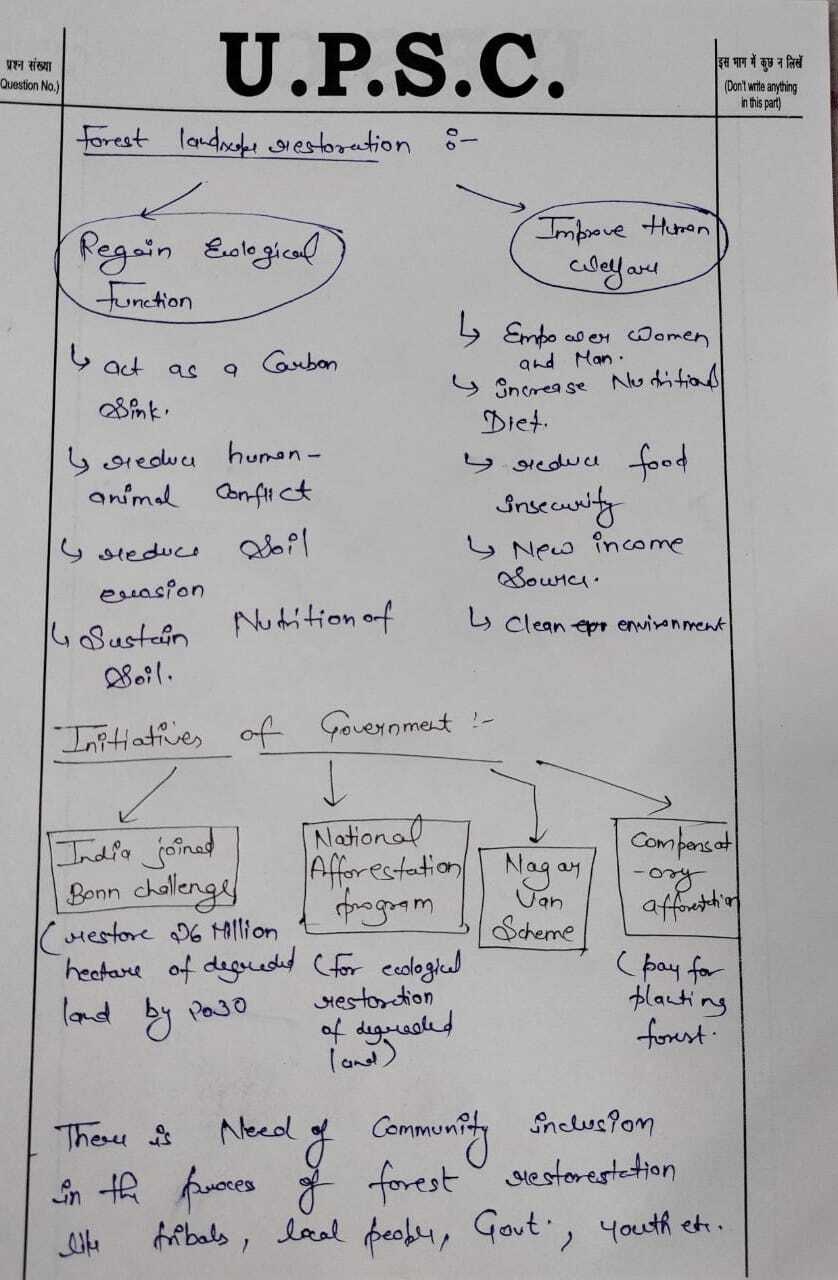 U.P.S.C.
प्रश्न संख्या
(Question No.)
इस भाग में कुछ न लिखें
(Don't write anything
in this part)
Forest landscape restoration :-
Regain Ecological
Function
↳ act as a Carbon
Sink.
↳ reduce human-
animal Conflict
↳ reduce Soil
erosion
↳ Sustain Nutrition of
Soil.
Improve Human
Welfare
↳ Empower Women
and Man.
↳ increase Nutritional
Diet.
↳ reduce food
insecurity
↳ New income
Source.
↳ Clean environment
Initiatives of Government :-
India joined
Bonn challenge
(restore 26 Million
hectare of degraded
land by 2030
National
Afforestation
program
(for ecological
restorction
of degraded
land)
Nagar
Van
Scheme
Compensat
-ory
afforestation
(pay for
planting
forest.
There is Need of Community inclusion
in the process of forest restorestation
like tribals, local people, Govt., youth etc.